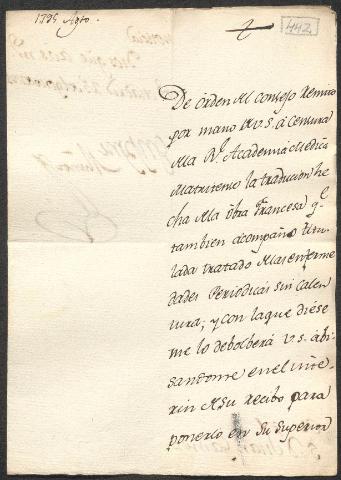 1795 Agto.
442
De orden del Consejo Remito
por mano de V.S. à Censura
de la Rl. Academia Medica
Matritense la traduccion he
cha de la obra francesa qe
tambien acompaño titu
lada tratado de las enferme
dades Periodicas sin calen
tura; y con la que diese
me lo debolberá V.S. abi
sandome en el inte-
rin de su recibo para
ponerlo en su superior